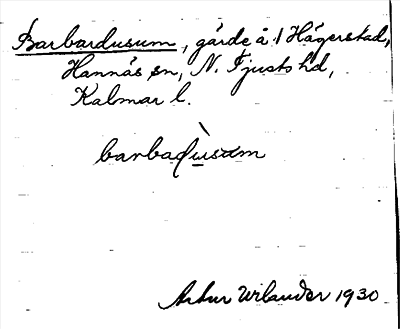 Barbardusum, gärde å 1 Hägerstad,
Hannäs sn, N. Tjusts hd,
Kalmar l.
barbadùsum
Artur Wilander 1930